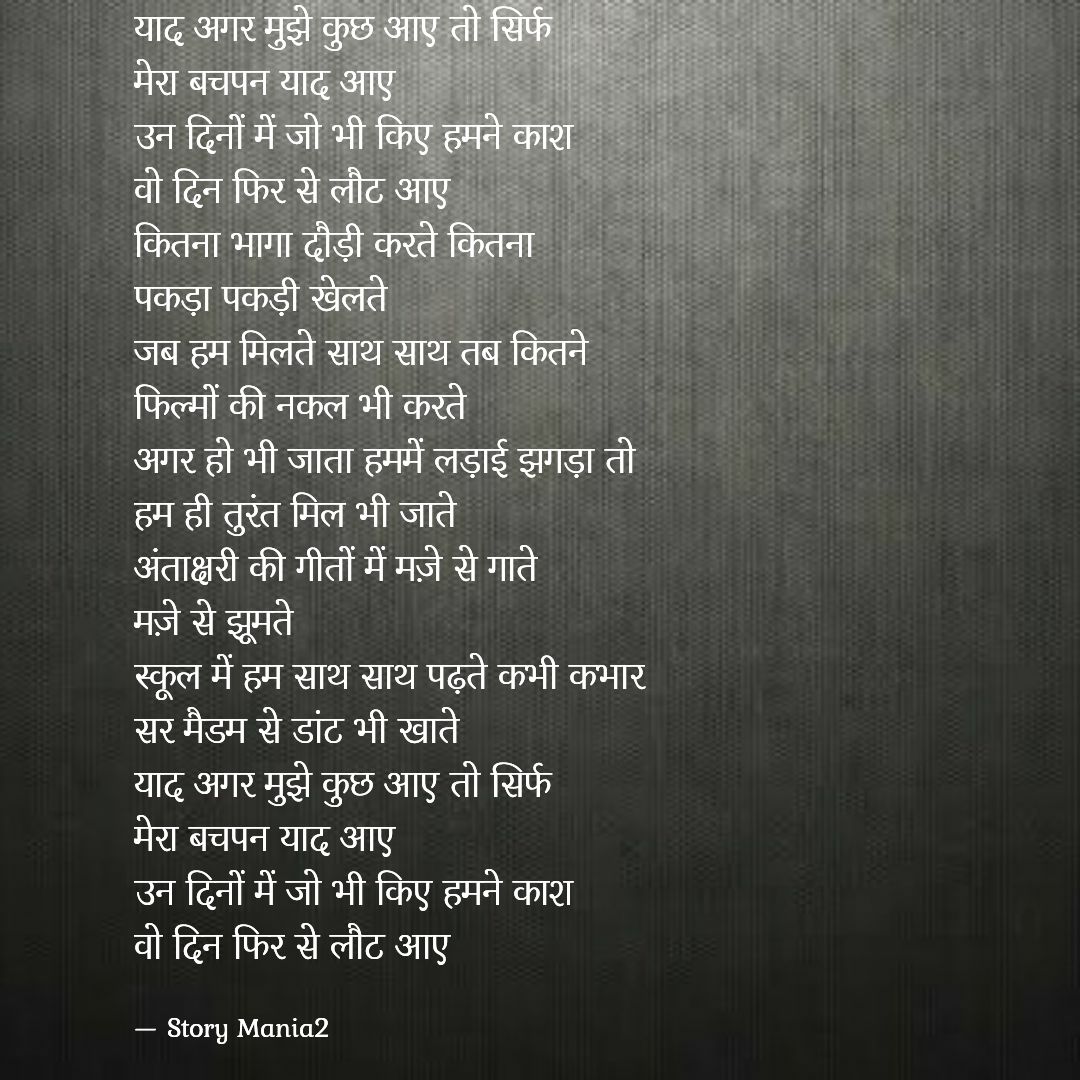 याद अगर मुझे कुछ आए तो सिर्फ
मेरा बचपन याद आए
उन दिनों में जो भी किए हमने काश
वो दिन फिर से लौट आए
कितना भागा दौड़ी करते कितना
पकड़ा पकड़ी खेलते
जब हम मिलते साथ साथ तब कितने
फिल्मों की नकल भी करते
अगर हो भी जाता हममें लड़ाई झगड़ा तो
हम ही तुरंत मिल भी जाते
अंताक्षरी की गीतों में मज़े से गाते
मज़े से झूमते
स्कूल में हम साथ साथ पढ़ते कभी कभार
सर मैडम से डांट भी खाते
याद अगर मुझे कुछ आए तो सिर्फ
मेरा बचपन याद आए
उन दिनों में जो भी किए हमने काश
वो दिन फिर से लौट आए
— Story Mania2